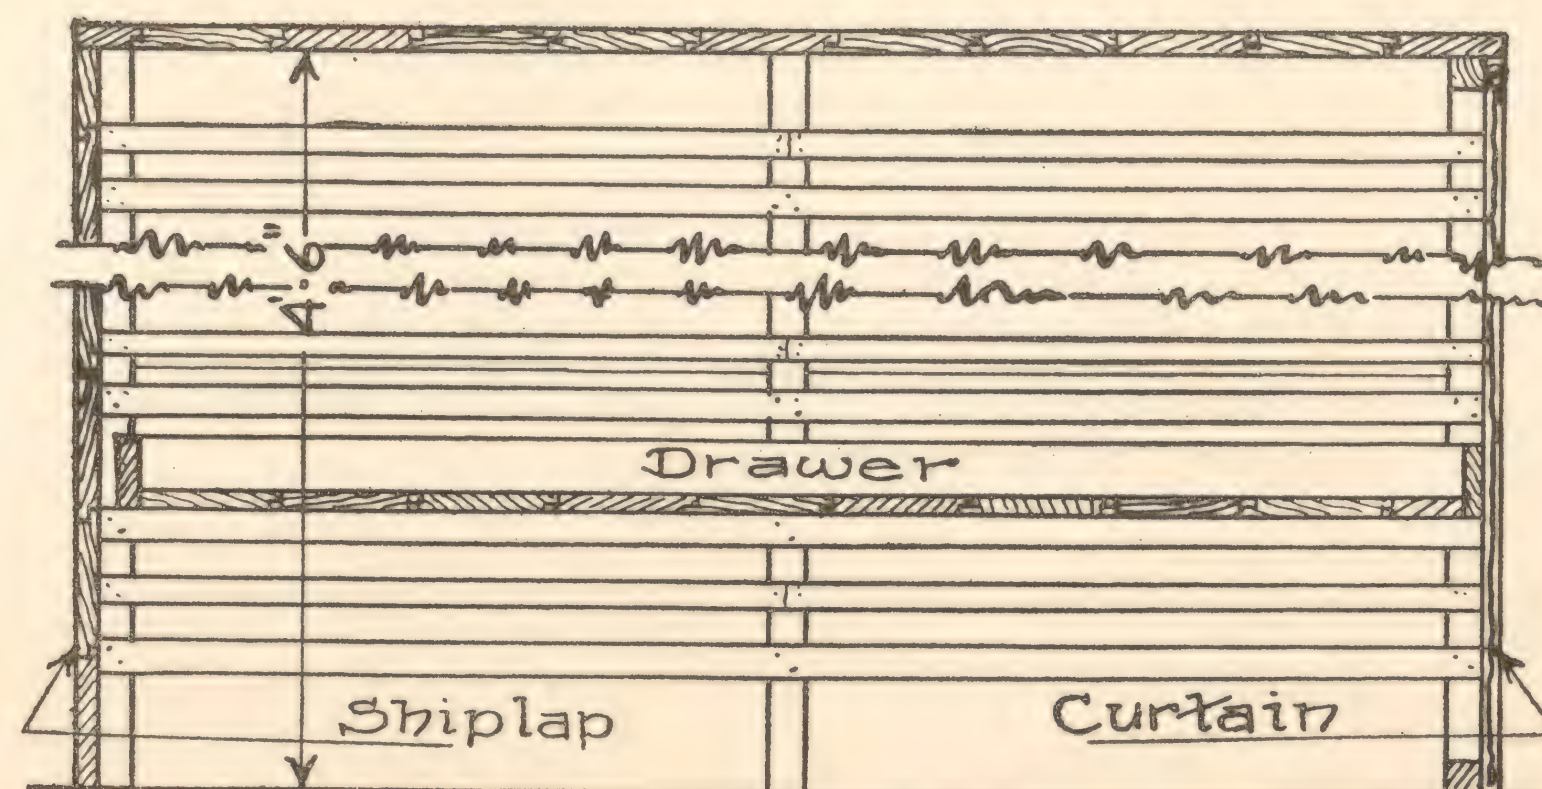 4'-6"
Drawer
Shiplap
Curtain